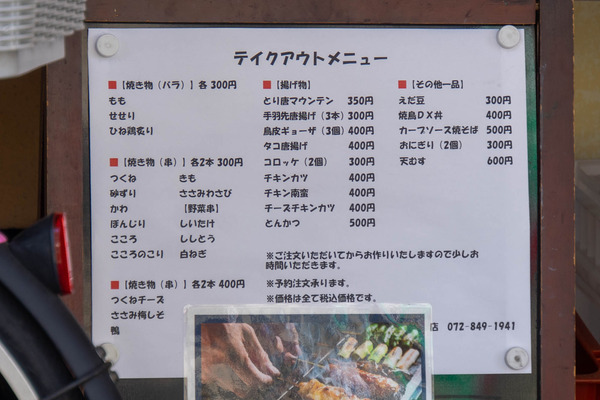 テイクアウトメニュー
■【焼き物（バラ）】各 300円
もも
せせり
ひね鶏炙り
■【焼き物（串）】各2本 300円
つくね　きも
砂ずり　ささみわさび
かわ　【野菜串】
ぼんじり　しいたけ
こころ　ししとう
こころのこり　白ねぎ
■【焼き物（串）】各2本 400円
つくねチーズ
ささみ梅しそ
鴨
■【揚げ物】
とり唐マウンテン　350円
手羽先唐揚げ（3本）300円
鳥皮ギョーザ（3個）400円
タコ唐揚げ　400円
コロッケ（2個）　300円
チキンカツ　400円
チキン南蛮　400円
チーズチキンカツ　400円
とんかつ　500円
※ご注文いただいてからお作りいたしますので少しお
時間いただきます。
※予約注文承ります。
※価格は全て税込価格です。
■【その他一品】
えだ豆　300円
焼鳥DX丼　400円
カープソース焼そば　500円
おにぎり（2個）　300円
天むす　600円
店 072-849-1941